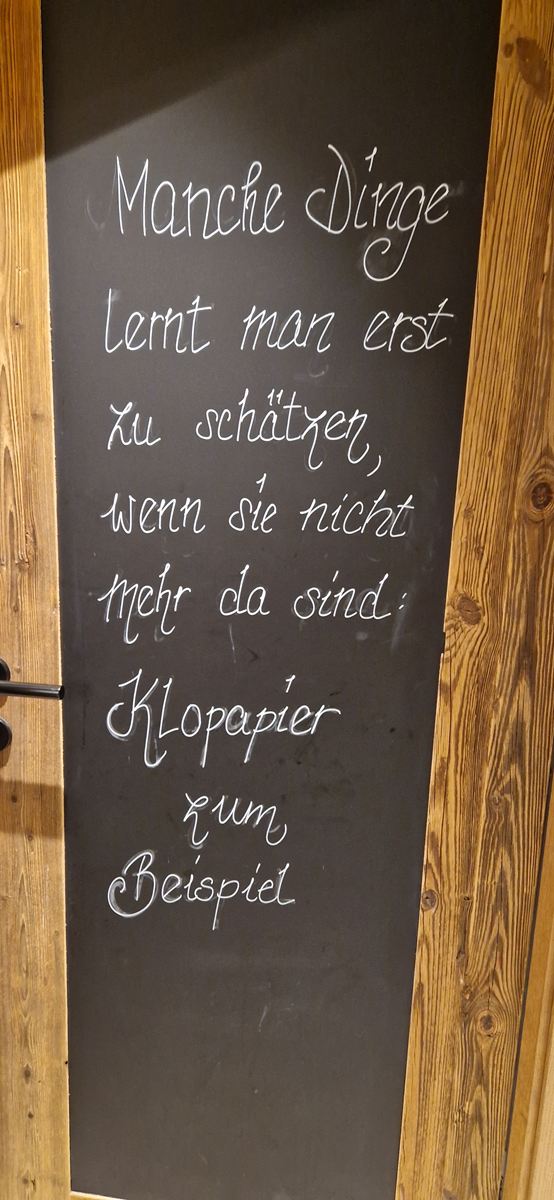 Manche Dinge
lernt man erst
zu schätzen,
wenn sie nicht
mehr da sind:
Klopapier
zum
Beispiel